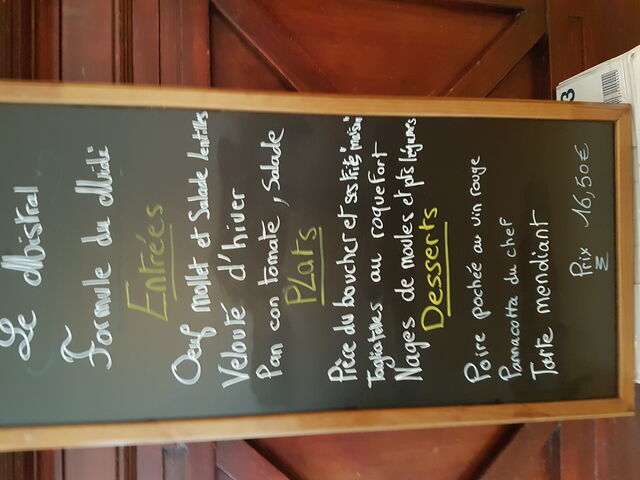 Le Mistral
Formule du Midi
Entrées
Oeuf mollet et Salade lentilles
Velouté d'hiver
Pan con tomate, Salade
Plats
Pièce du boucher et ses frites maison
Tagliatelles au roquefort
Nages de moules et pts légumes
Desserts
Poire pochée au vin rouge
Pannacotta du chef
Tarte mendiant
Prix 16,50€